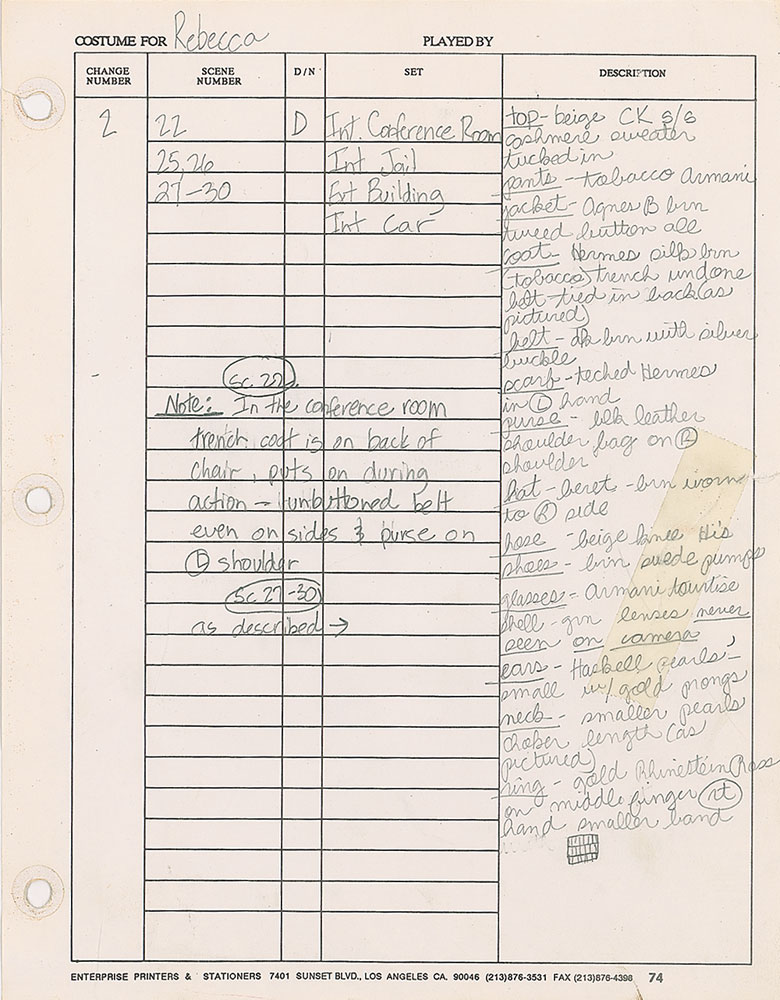 COSTUME FOR Rebecca PLAYED BY
CHANGE NUMBER SCENE NUMBER D/N SET DESCRIPTION
2 22 D Int. Conference Room
25,26 Int Jail
27-30 Ext Building
Int Car
Sc. 22
Note: In the conference room
trench coat is on back of
chair, puts on during
action - unbuttoned belt
even on sides & purse on
L shoulder
Sc 27-30
as described →
top - beige CK s/s
cashmere sweater
tucked in
pants - tobacco Armani
jacket - Agnes B brn
tweed button all
coat - Hermes silk brn
(tobacco) trench undone
belt tied in back (as
pictured)
belt - dk brn with silver
buckle
scarf - teched Hermes
in L hand
purse - blk leather
shoulder bag on R
shoulder
hat - beret - brn worn
to R side
hose - beige knee Hi's
shoes - brn suede pumps
glasses - Armani tourtise
shell - grn lenses never
seen on camera
ears - Haskell pearls -
small w/ gold prongs
neck - smaller pearls
choker length (as
pictured)
ring - gold Rhinestein
on middle finger rt
hand smaller band
ENTERPRISE PRINTERS & STATIONERS 7401 SUNSET BLVD., LOS ANGELES CA. 90046 (213)876-3531 FAX (213)876-4398 74